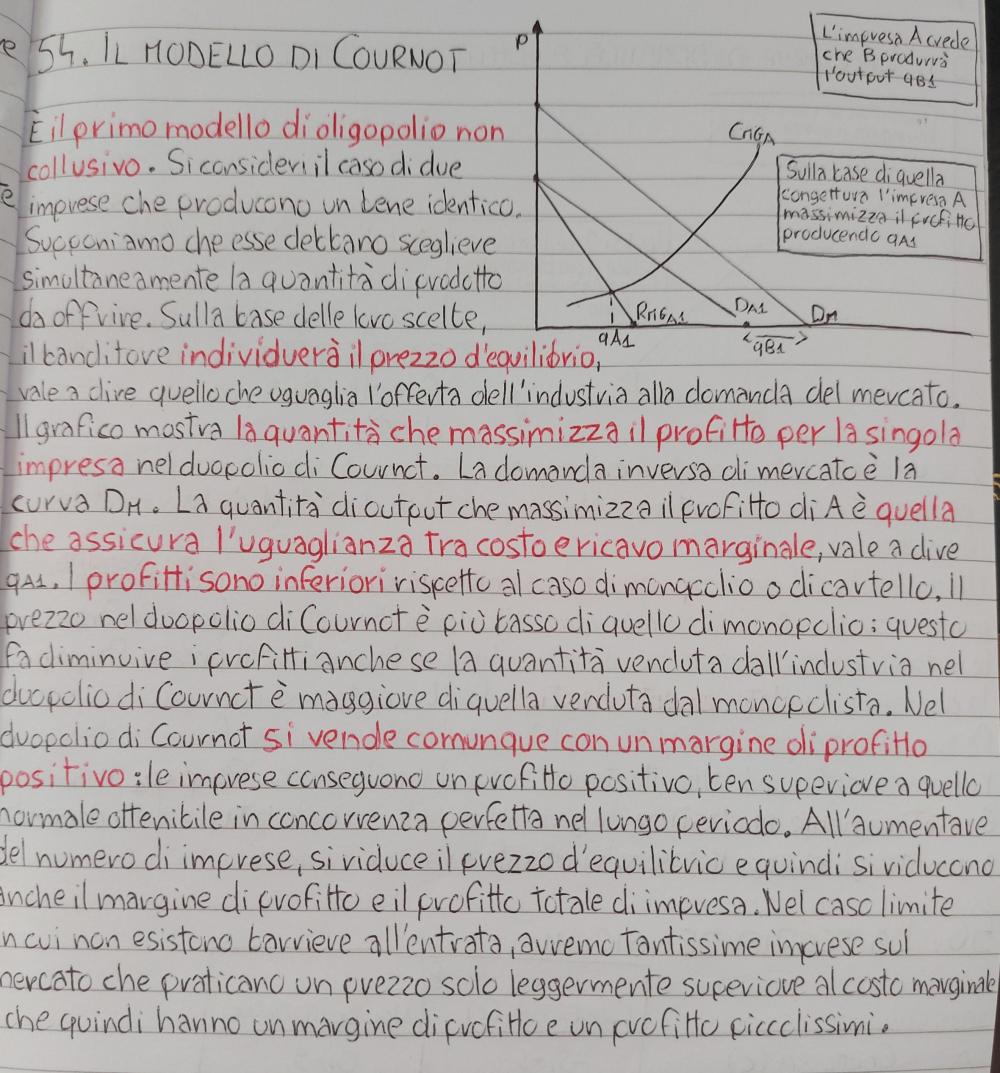 54. IL MODELLO DI COURNOT
P
L'impresa A crede
che B produrrà
l'output qB1
CMGA
Sulla base di quella
congettura l'impresa A
massimizza il profitto
producendo qA1
RMGA1
DA1
DM
qA1
qB1
È il primo modello di oligopolio non
collusivo. Si consideri il caso di due
imprese che producono un bene identico.
Supponiamo che esse debbano scegliere
simultaneamente la quantità di prodotto
da offrire. Sulla base delle loro scelte,
il banditore individuerà il prezzo d'equilibrio,
vale a dire quello che uguaglia l'offerta dell'industria alla domanda del mercato.
Il grafico mostra la quantità che massimizza il profitto per la singola
impresa nel duopolio di Cournot. La domanda inversa di mercato è la
curva DM. La quantità di output che massimizza il profitto di A è quella
che assicura l'uguaglianza tra costo e ricavo marginale, vale a dire
qA1. I profitti sono inferiori rispetto al caso di monopolio o di cartello. Il
prezzo nel duopolio di Cournot è più basso di quello di monopolio: questo
fa diminuire i profitti anche se la quantità venduta dall'industria nel
duopolio di Cournot è maggiore di quella venduta dal monopolista. Nel
duopolio di Cournot si vende comunque con un margine di profitto
positivo: le imprese conseguono un profitto positivo, ben superiore a quello
normale ottenibile in concorrenza perfetta nel lungo periodo. All'aumentare
del numero di imprese, si riduce il prezzo d'equilibrio e quindi si riducono
anche il margine di profitto e il profitto totale di impresa. Nel caso limite
in cui non esistono barriere all'entrata, avremo tantissime imprese sul
mercato che praticano un prezzo solo leggermente superiore al costo marginale
che quindi hanno un margine di profitto e un profitto piccolissimi.